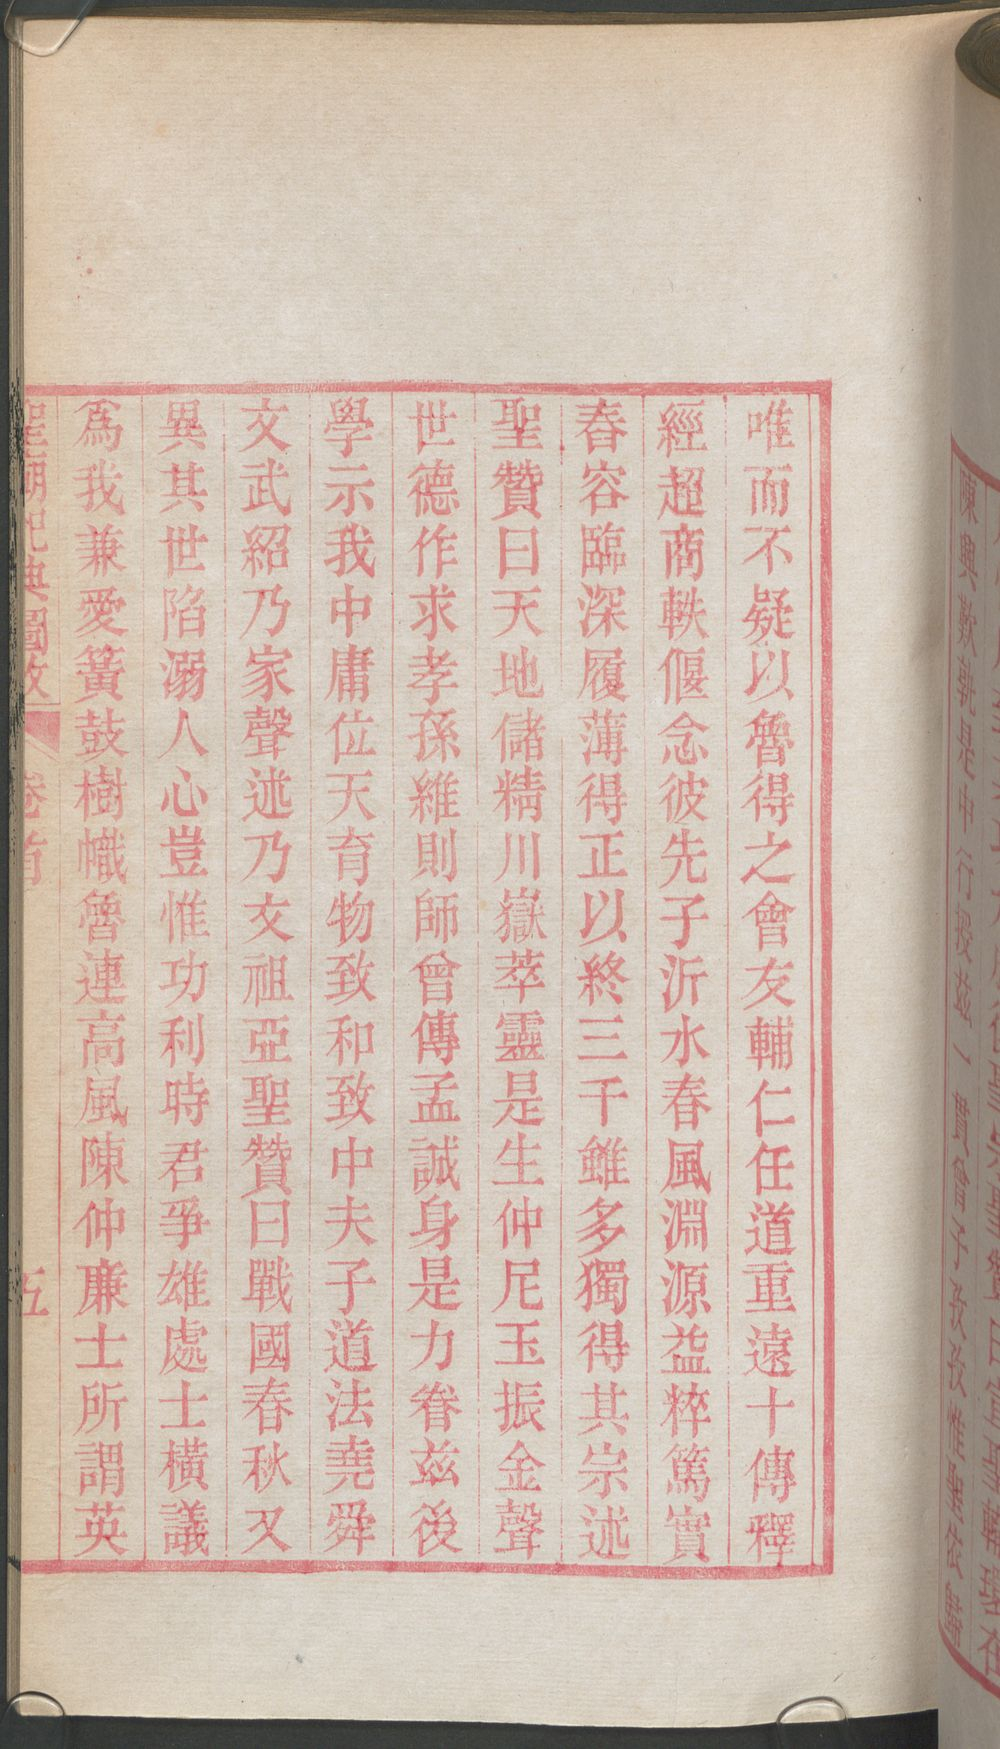 唯而不疑以魯得之會友輔仁任道重遠十傳釋
經超商軼偃念彼先子沂水春風淵源益粹篤實
春容臨深履薄得正以終三千雖多獨得其宗述
聖贊曰天地儲精川嶽萃靈是生仲尼玉振金聲
世德作求孝孫維則師曾傳孟誠身是力眷茲後
學示我中庸位天育物致和致中夫子道法堯舜
文武紹乃家聲述乃文祖亞聖贊曰戰國春秋又
異其世陷溺人心豈惟功利時君爭雄處士橫議
爲我兼愛簧鼓樹幟魯連高風陳仲廉士所謂英
聖廟祀典圖攷 卷首 五